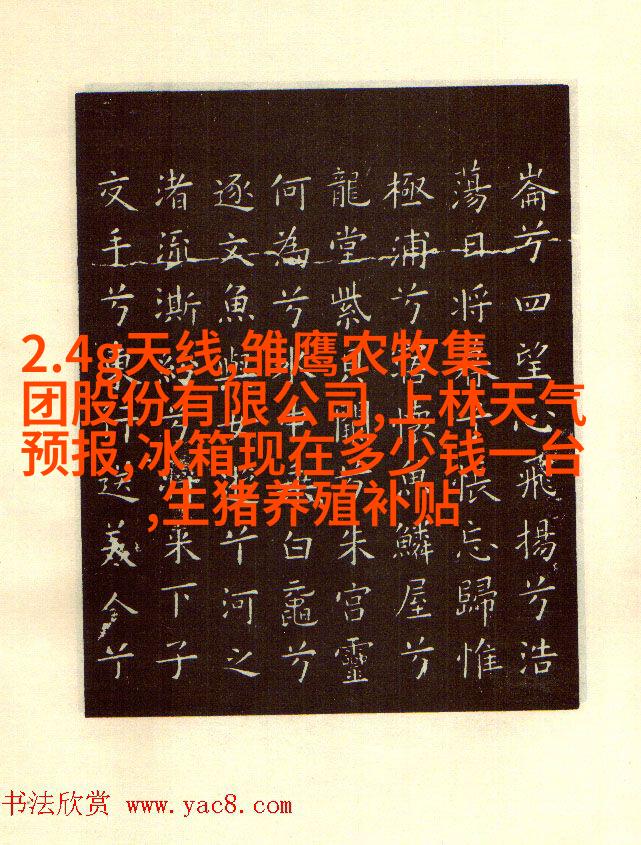 崙兮四望心飛揚兮浩
蕩日將暮兮悵忘歸惟
極浦兮寤懷魚鱗屋兮
龍堂紫貝闕兮朱宮靈
何為兮水中乘白黿兮
逐文魚與女遊兮河之
渚流澌紛兮將來下子
交手兮東行送美人兮
2.4g天线,雏鹰农牧集
团股份有限公司,上林天气
预报,冰箱现在多少钱一台
,生猪养殖补贴
书法欣赏 www.yac8.com